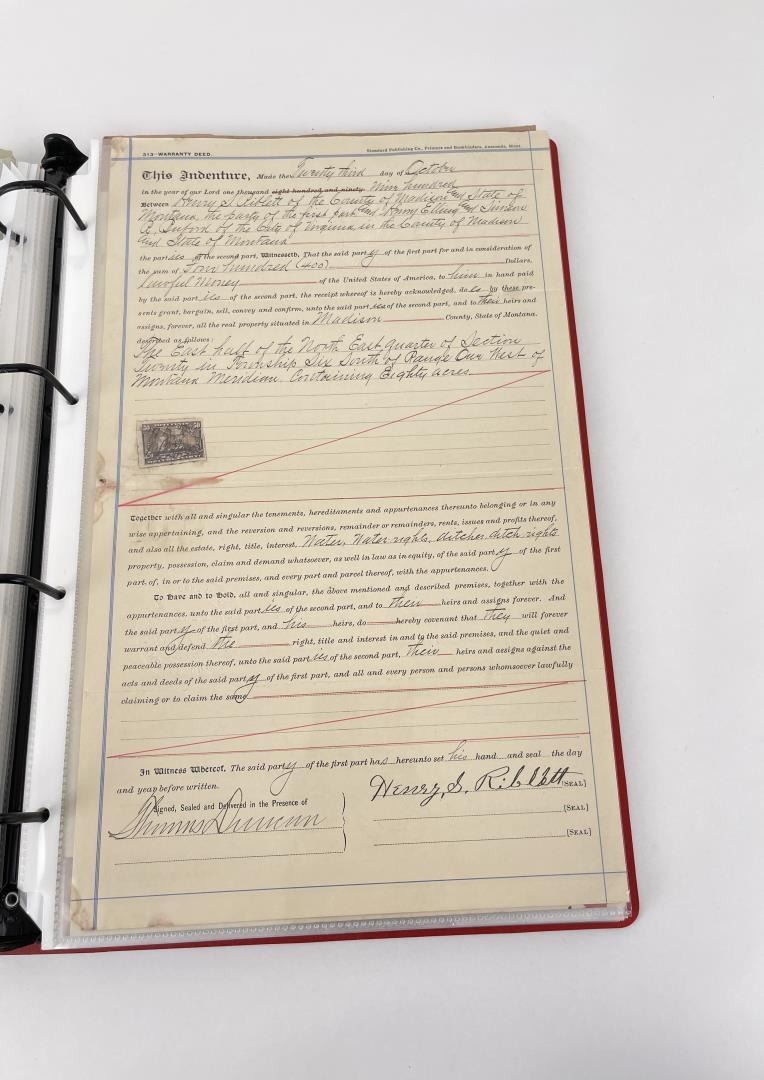 313—WARRANTY DEED. Standard Publishing Co., Printers and Bookbinders, Anaconda, Mont.
This Indenture, Made the Twenty third day of October
in the year of our Lord one thousand eight hundred and ninety Nine hundred
Between Henry S. Riblett of the County of Madison and State of
Montana, the party of the first part and Henry Elling and Simeon
R. Buford of the City of Virginia in the County of Madison
and State of Montana
the parties of the second part, Witnesseth, That the said party of the first part for and in consideration of
the sum of Four hundred (400) Dollars,
Lawful Money of the United States of America, to him in hand paid
by the said parties of the second part, the receipt whereof is hereby acknowledged, does by these pre-
sents grant, bargain, sell, convey and confirm, unto the said parties of the second part, and to their heirs and
assigns, forever, all the real property situated in Madison County, State of Montana,
described as follows:
The East half of the North East quarter of Section
Twenty in Township Six South of Range One West of
Montana Meridian. Containing Eighty acres
50 50
Together with all and singular the tenements, hereditaments and appurtenances thereunto belonging or in any
wise appertaining, and the reversion and reversions, remainder or remainders, rents, issues and profits thereof,
and also all the estate, right, title, interest, Water, Water rights, ditches, ditch rights
property, possession, claim and demand whatsoever, as well in law as in equity, of the said party of the first
part, of, in or to the said premises, and every part and parcel thereof, with the appurtenances.
To Have and to Hold, all and singular, the above mentioned and described premises, together with the
appurtenances, unto the said parties of the second part, and to their heirs and assigns forever. And
the said party of the first part, and his heirs, do hereby covenant that they will forever
warrant and defend the right, title and interest in and to the said premises, and the quiet and
peaceable possession thereof, unto the said parties of the second part, their heirs and assigns against the
acts and deeds of the said party of the first part, and all and every person and persons whomsoever lawfully
claiming or to claim the same
In Witness Whereof, The said party of the first part has hereunto set his hand and seal the day
and year before written.
Signed, Sealed and Delivered in the Presence of
Henry S. Riblett [SEAL]
Thomas Duncan
[SEAL]
[SEAL]